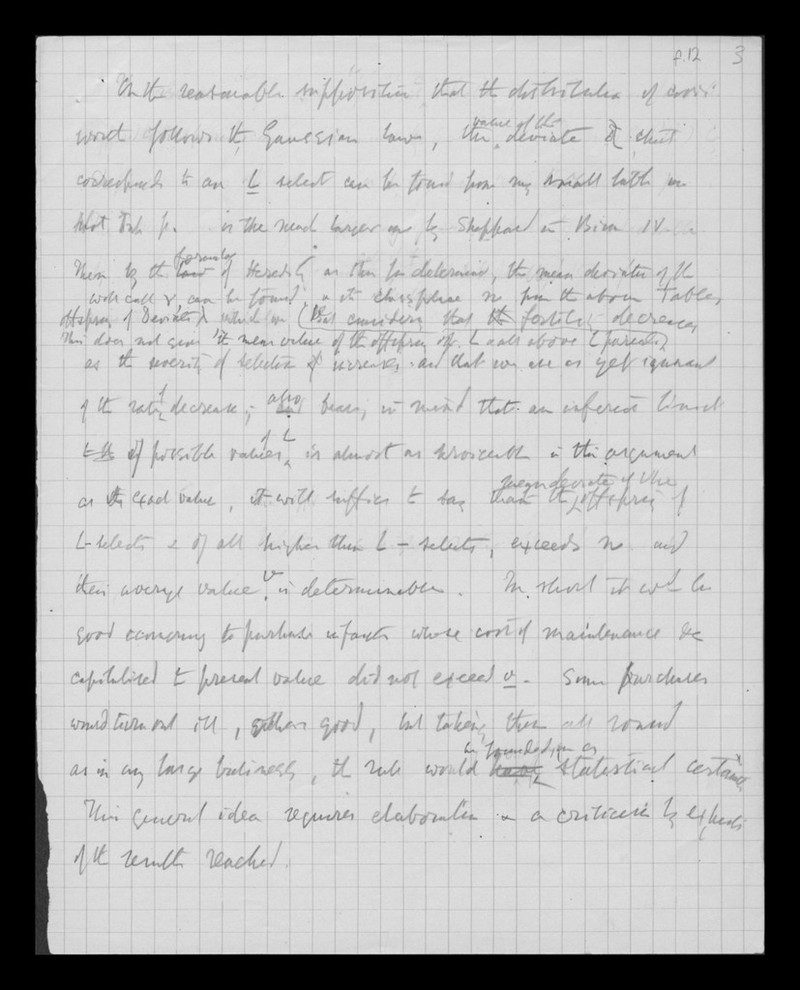 p.12 3
On the reasonable supposition that the distribution of civic
worth follows the Gaussian law, the value of the deviate that
corresponds to an L select can be found from my small table
p. or the much larger one by Sheppard in Biom IV
Then by the formula of Heredity as thus far determined, the mean deviate of the
we call v, can be found, from the above Tables
offspring of Deviates considering that fertility decreases
This does not give the mean value of the offspring of L & all above L parents
as the severity of selection increases and that we are as yet ignorant
of the rate of decrease, also bearing in mind that an inferior limit
of possible values of L is almost as serviceable in this argument
as the exact value, it will suffice to say that the mean deviate of the offspring of
L-selects & of all higher than L-selects, exceeds and
their average value v is determinable. In short it wd be
good economy to purchase infants whose cost of maintenance &c
capitalised to present value did not exceed v. Some purchases
would turn out ill, others good, but taking them all round
as in any large business, the rule would be founded on a statistical certainty.
This general idea requires elaboration & a criticism by experts
of the results reached.